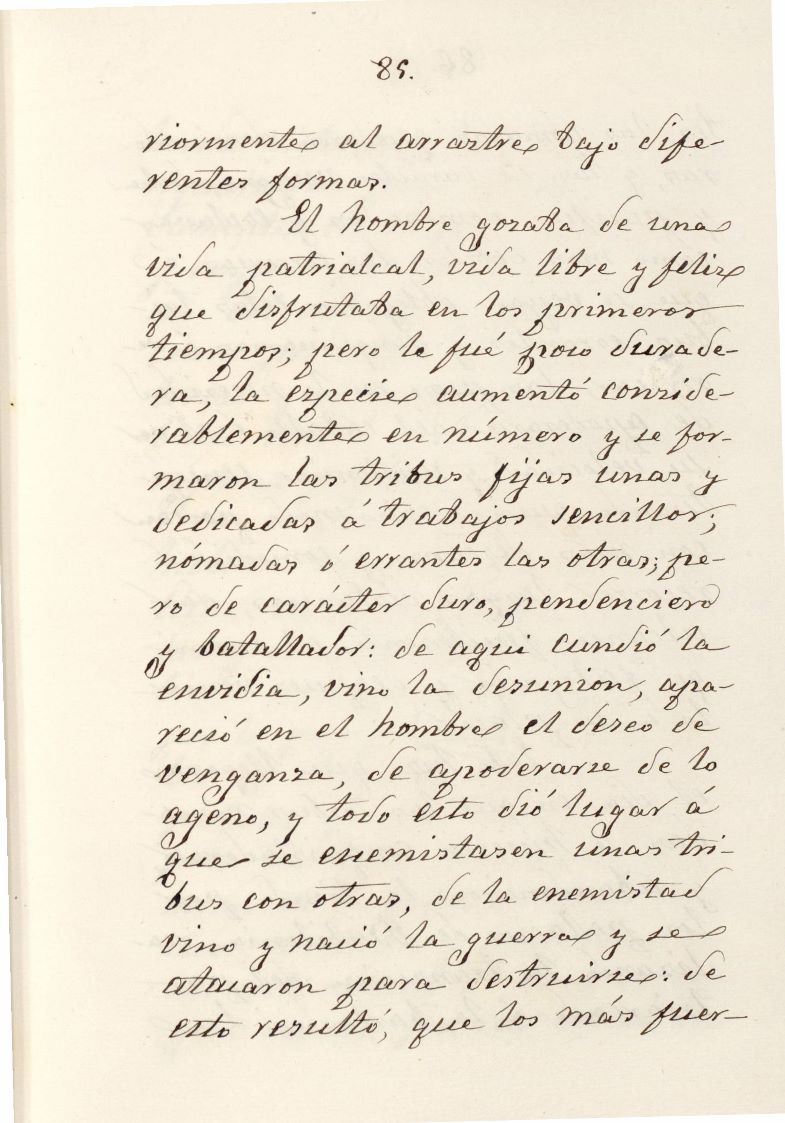 85.
riormente al arrastre bajo dife-
rentes formas.
El hombre gozaba de una
vida patrialcal, vida libre y feliz
que disfrutaba en los primeros
tiempos; pero le fué poco durade-
ra, la especie aumentó conside-
rablemente en número y se for-
maron las tribus fijas unas y
dedicadas á trabajos sencillos;
nómadas ó errantes las otras; pe-
ro de carácter duro, pendenciero
y batallador: de aqui cundió la
envidia, vino la desunion, apa-
reció en el hombre el deseo de
venganza, de apoderarse de lo
ageno, y todo esto dió lugar á
que se enemistasen unas tri-
bus con otras, de la enemistad
vino y nació la guerra y se
atacaron para destruirse: de
esto resultó, que los más fuer-